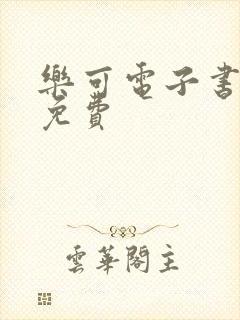 樂可電子書
免費
雲華閣主